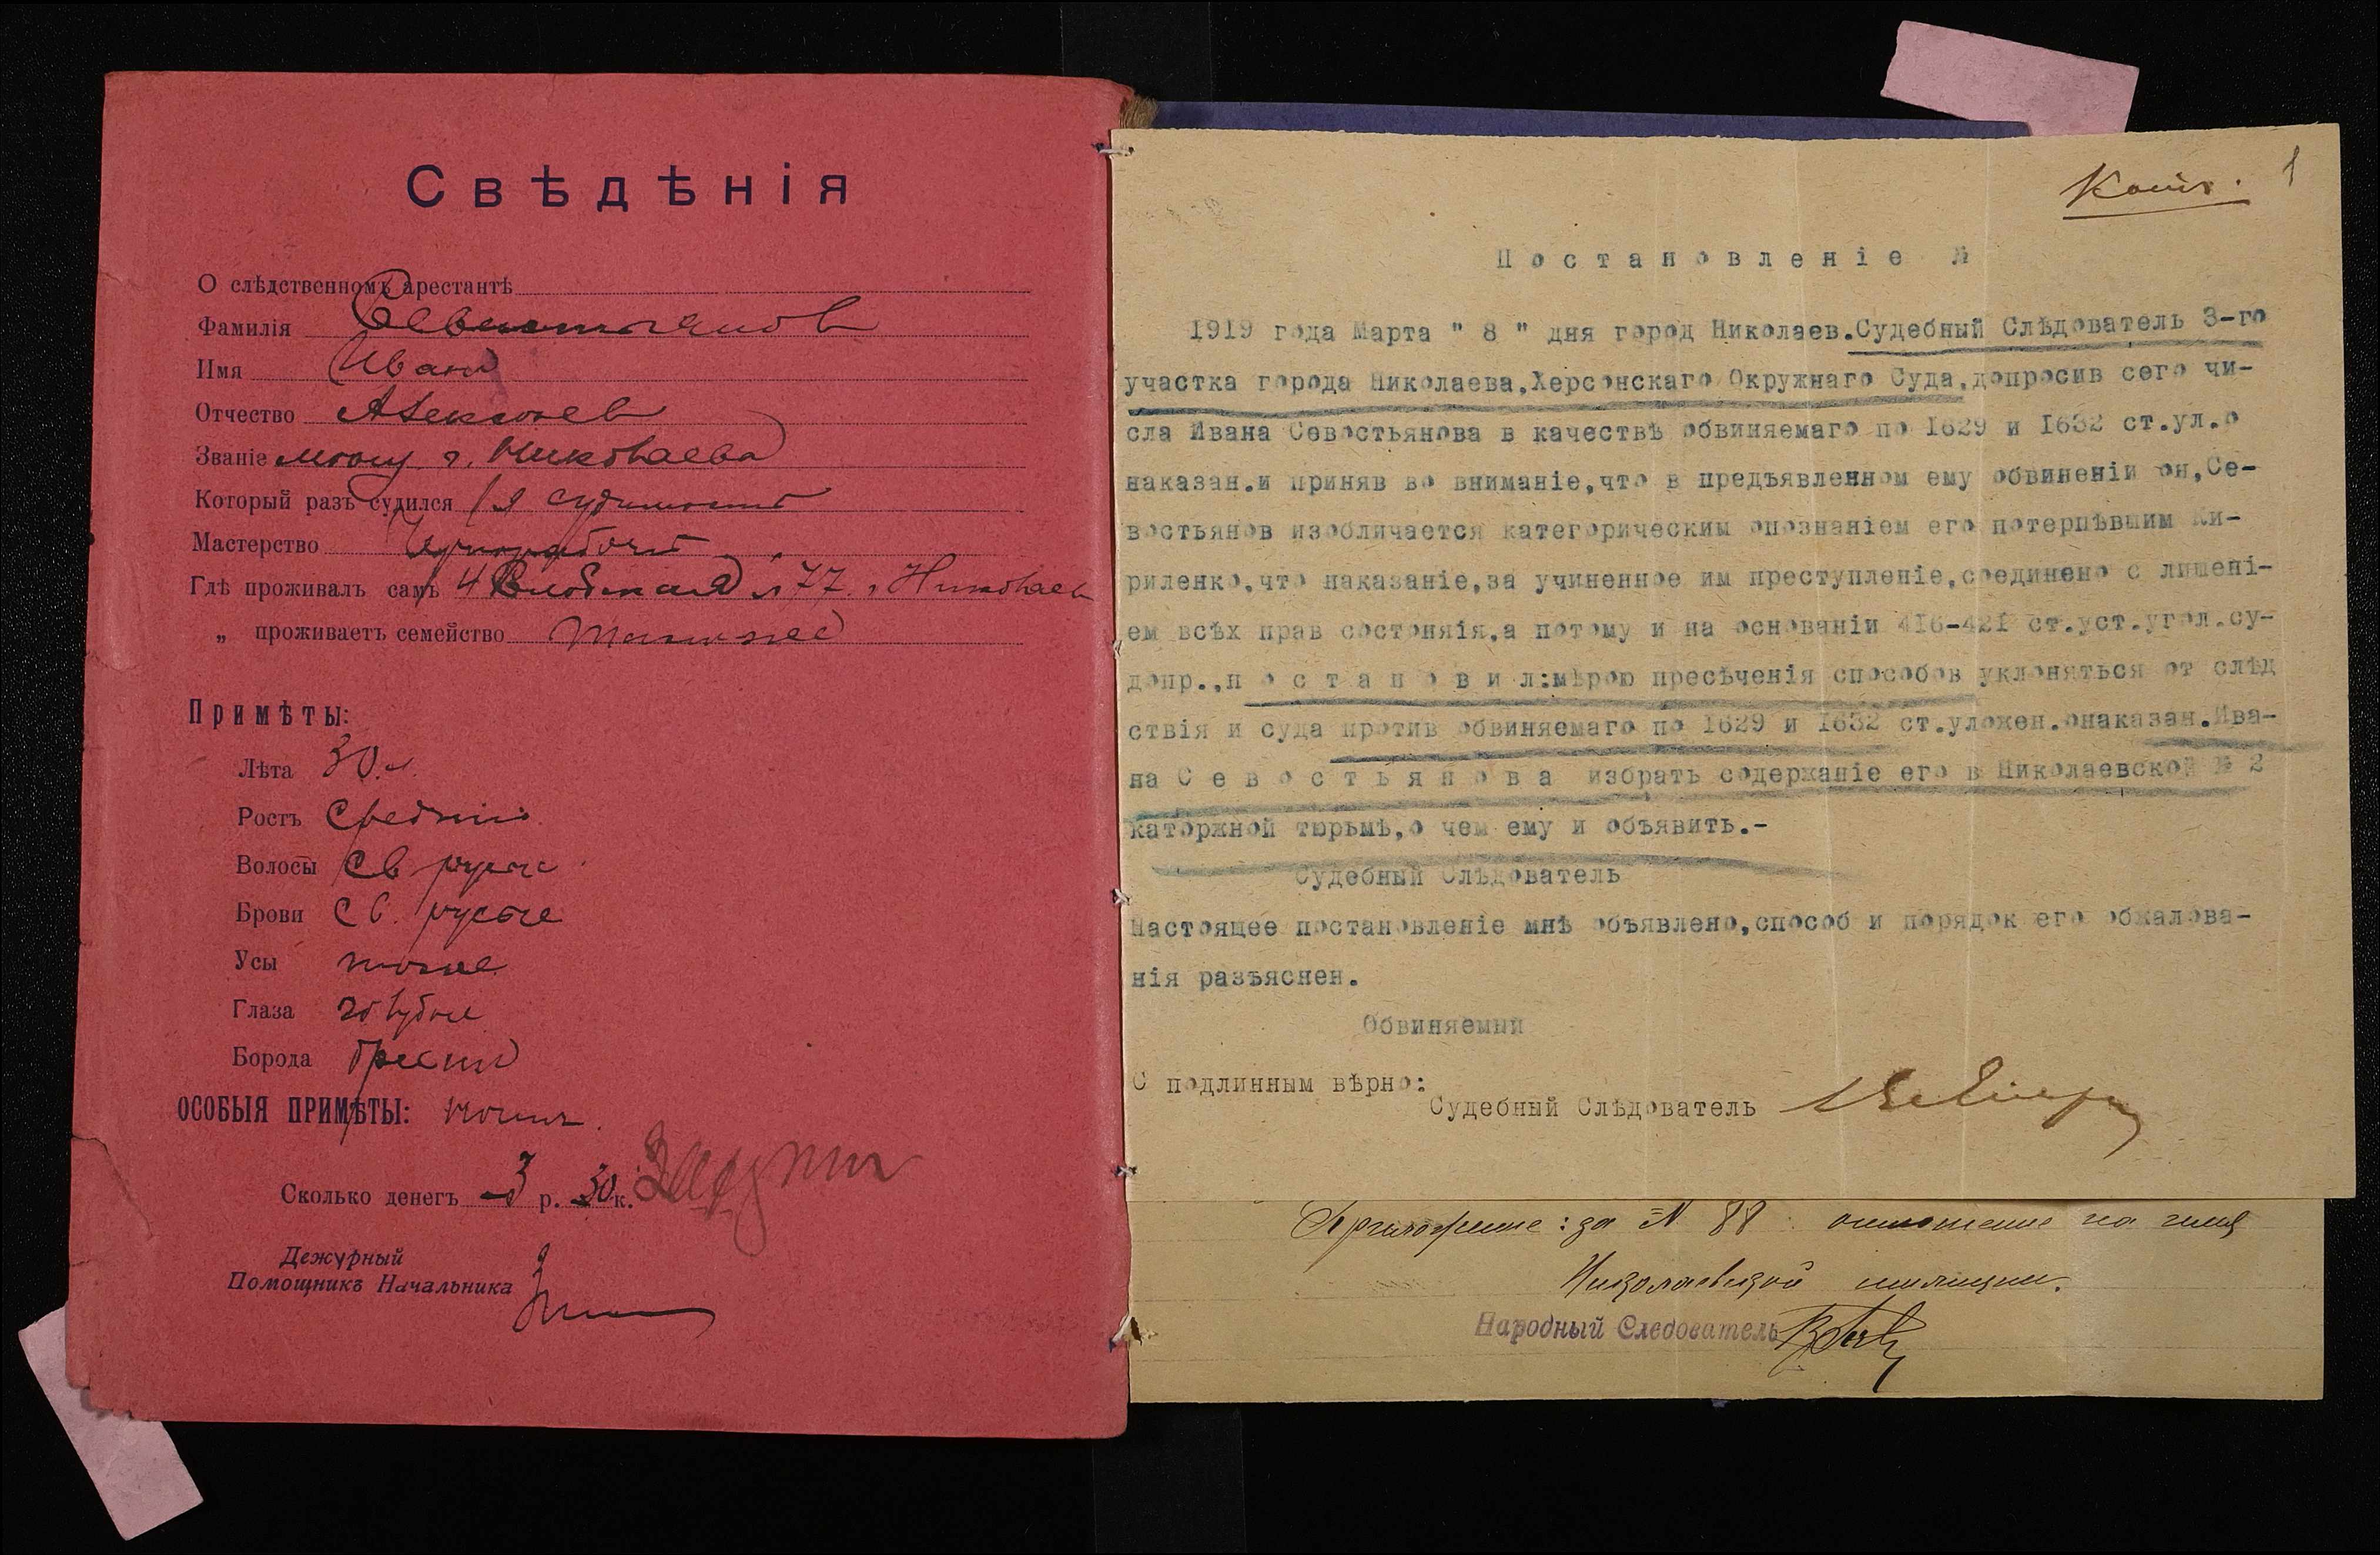 Свѣдѣнія
О слѣдственномъ арестантѣ
Фамилія Севостьянов
Имя Иван
Отчество Алексеев
Званіе мещ г. Николаева
Который разъ судился 1я судимость
Мастерство Чернорабочій
Гдѣ проживалъ самъ 4 Слободская № 77 г Николаев
„ проживаетъ семейство
Примѣты:
Лѣта 30 л.
Ростъ Средній
Волосы св русые
Брови св. русые
Усы тоже
Глаза голубые
Борода бреет
ОСОБЫЯ ПРИМѢТЫ:
Сколько денегъ 3 р. 30 к.
Дежурный
Помощникъ Начальника
Копія. 1
Постановленіе №
1919 года Марта " 8 " дня город Николаев.Судебный Слѣдователь 3-го
участка города Николаева,Херсонскаго Окружнаго Суда,допросив сего чи-
сла Ивана Севостьянова в качествѣ обвиняемаго по 1629 и 1632 ст.ул.о
наказан.и приняв во вниманіе,что в предъявленном ему обвиненіи он,Се-
востьянов изобличается категорическим опознаніем его потерпѣвшим Ки-
риленко,что наказаніе,за учиненное им преступленіе,соединено с лишені-
ем всѣх прав состояяія,а потому и на основаніи 416-421 ст.уст.угол.су-
допр.,п о с т а н о в и л:мѣрою пресѣченія способов уклоняться от слѣд
ствія и суда против обвиняемаго по 1629 и 1632 ст.уложен.онаказан.Ива-
на С е в о с т ь я н о в а избрать содержаніе его в Николаевской № 2
каторжной тюрьмѣ,о чем ему и объявить.-
Судебный Слѣдователь
Настоящее постановленіе мнѣ объявлено,способ и порядок его обжалова-
нія разъяснен.
Обвиняемый
С подлинным вѣрно:
Судебный Слѣдователь
Приложение: за № 88 отношение на имя
Николаевской милиции.
Народный Следователь